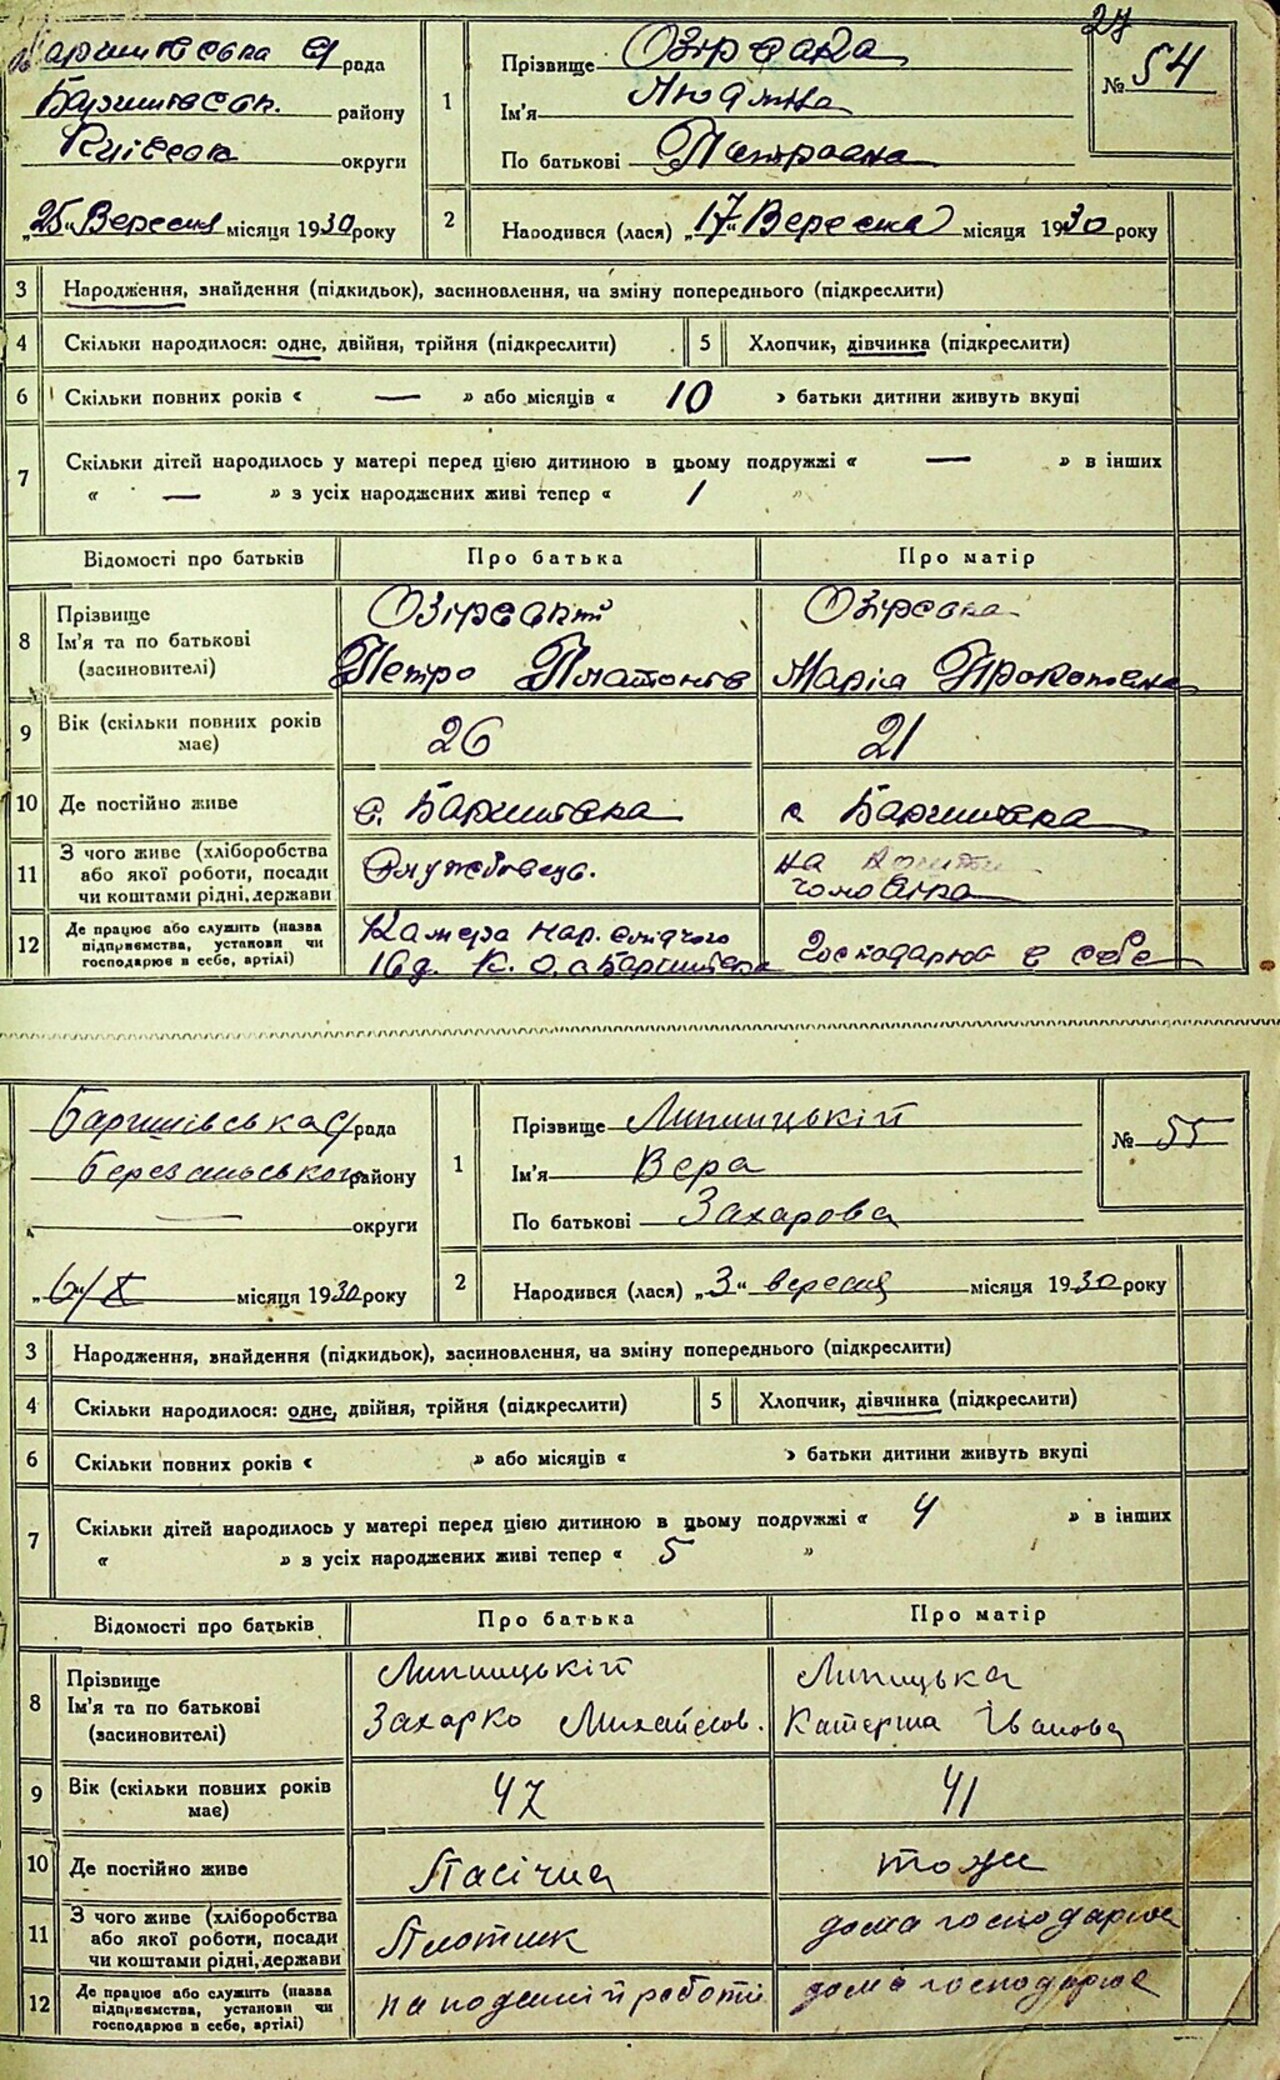 27
Баришівська С/рада
Баришівськ. району
Київськ округи
„25“ Вересня місяця 1930 року
1
Прізвище Озірська
Ім'я Людміла
По батькові Петровна
№ 54
2
Народився (лася) „17“ Вересня місяця 1930 року
3 Народження, знайдення (підкидьок), засиновлення, на зміну попереднього (підкреслити)
4 Скільки народилося: одне, двійня, трійня (підкреслити) 5 Хлопчик, дівчинка (підкреслити)
6 Скільки повних років « — » або місяців « 10 » батьки дитини живуть вкупі
7 Скільки дітей народилось у матері перед цією дитиною в цьому подружжі « — » в інших
« — » з усіх народжених живі тепер « 1 »
Відомості про батьків Про батька Про матір
8 Прізвище Ім'я та по батькові (засиновителі)
Озірський Озірська
Петро Платонів Марія Прокопівна
9 Вік (скільки повних років має) 26 21
10 Де постійно живе с. Баришівка с Баришівка
11 З чого живе (хліборобства або якої роботи, посади чи коштами рідні, держави
Службовець. на кошти
чоловіка
12 Де працює або служить (назва підприємства, установи чи господарює в себе, артілі)
Камера нар. слідчого Господарює в себе
16 д. К. О. с Баришівка
Баришівська С/рада
Березанського району
— округи
„6“/X місяця 1930 року
1
Прізвище Липницькій
Ім'я Вера
По батькові Захарова
№ 55
2
Народився (лася) „3“ вересня місяця 1930 року
3 Народження, знайдення (підкидьок), засиновлення, на зміну попереднього (підкреслити)
4 Скільки народилося: одне, двійня, трійня (підкреслити) 5 Хлопчик, дівчинка (підкреслити)
6 Скільки повних років « » або місяців « » батьки дитини живуть вкупі
7 Скільки дітей народилось у матері перед цією дитиною в цьому подружжі « 4 » в інших
« » з усіх народжених живі тепер « 5 »
Відомості про батьків Про батька Про матір
8 Прізвище Ім'я та по батькові (засиновителі)
Липницькій Липицька
Захарко Михайлов. Катерина Іванова
9 Вік (скільки повних років має) 47 41
10 Де постійно живе Пасічна тоже
11 З чого живе (хліборобства або якої роботи, посади чи коштами рідні, держави
Плотник дома господарює
12 Де працює або служить (назва підприємства, установи чи господарює в себе, артілі)
на поденній роботі дома господарює